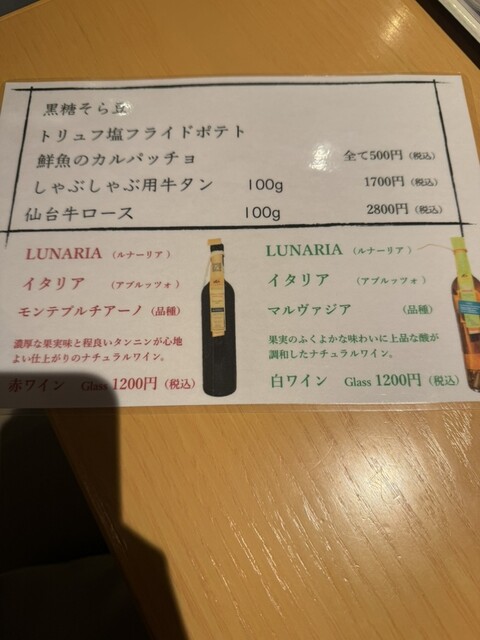 黒糖そら豆
トリュフ塩フライドポテト
鮮魚のカルパッチョ 全て500円（税込）
しゃぶしゃぶ用牛タン 100g 1700円（税込）
仙台牛ロース 100g 2800円（税込）
LUNARIA （ルナーリア）
イタリア （アブルッツォ）
モンテプルチアーノ（品種）
濃厚な果実味と程良いタンニンが心地
よい仕上がりのナチュラルワイン。
赤ワイン Glass 1200円（税込）
LUNARIA （ルナーリア）
イタリア （アブルッツォ）
マルヴァジア （品種）
果実のふくよかな味わいに上品な酸が
調和したナチュラルワイン。
白ワイン Glass 1200円（税込）